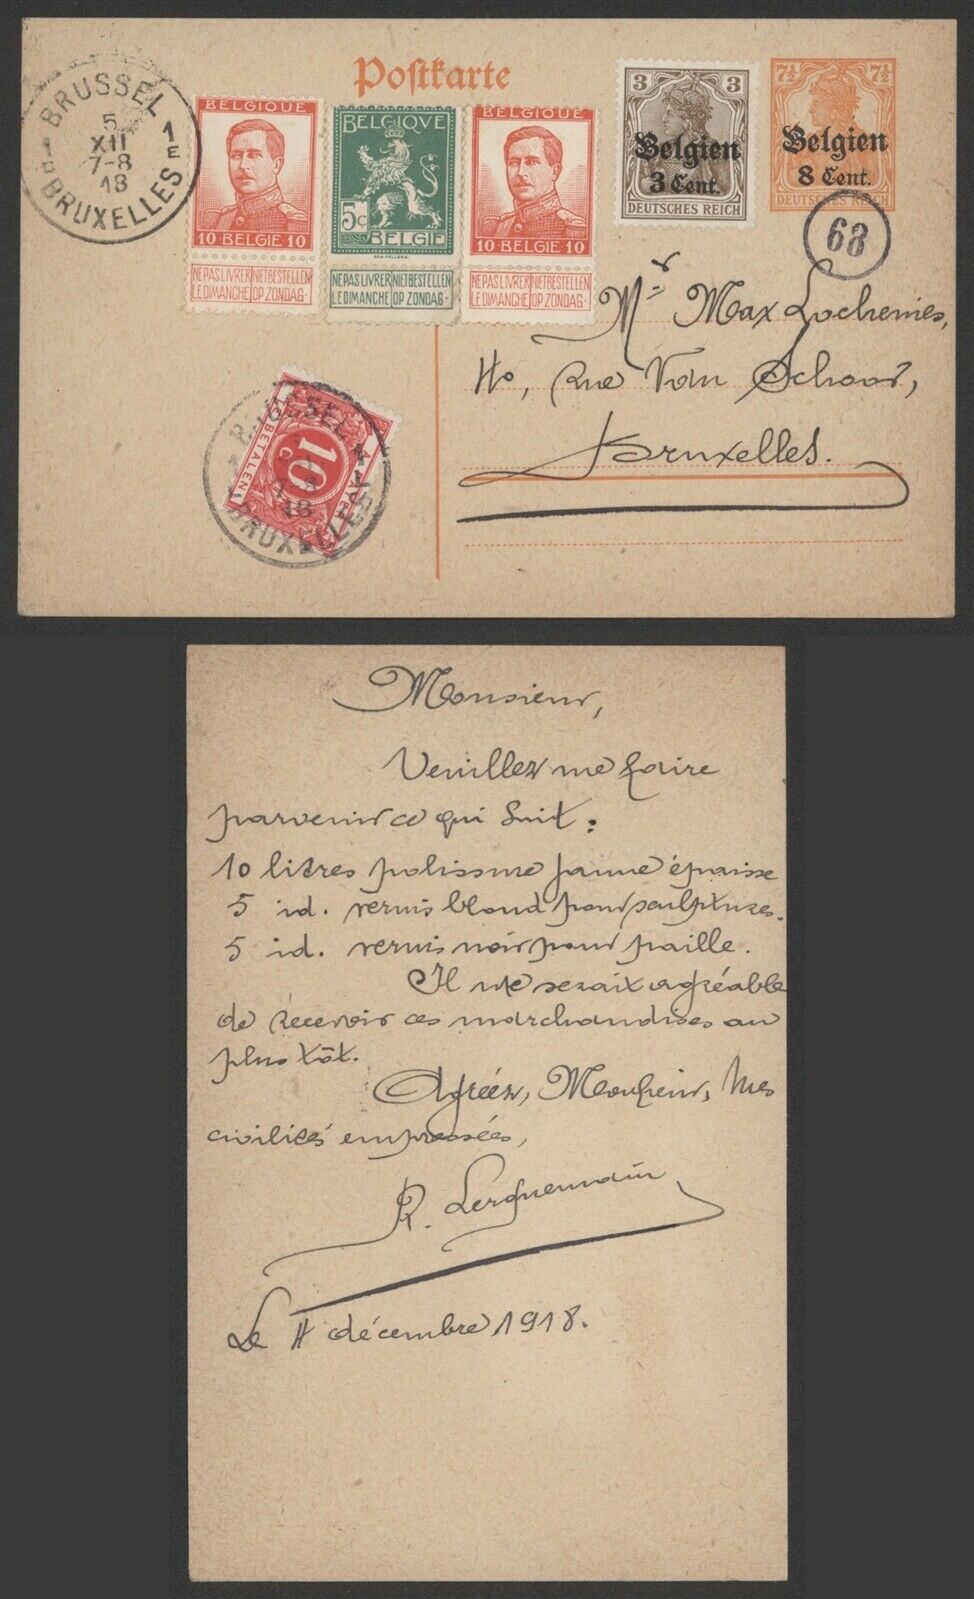 Postkarte
BRUSSEL
5
XII
7-8
18
1
E
BRUXELLES
BELGIQUE
10 BELGIE 10
NE PAS LIVRER NIET BESTELLEN
LE DIMANCHE OP ZONDAG.
BELGIQVE
5c
BELGIE
NE PAS LIVRER NIET BESTELLEN
LE DIMANCHE OP ZONDAG.
BELGIQUE
10 BELGIE 10
NE PAS LIVRER NIET BESTELLEN
LE DIMANCHE OP ZONDAG.
3 3
Belgien
3 Cent.
DEUTSCHES REICH
7½ 7½
Belgien
8 Cent.
DEUTSCHES REICH
68
Mr Max Lochenies,
rue Van Schoor,
Bruxelles.
BRUSSEL
A PAYER
10
C
TE BETALEN
18
BRUXELLES
Monsieur,
Veuillez me faire
parvenir ce qui suit :
10 litres polissure jaune épaisse
5 id. vernis blond pour sculptures.
5 id. vernis noir pour paille.
Il me serait agréable
de recevoir ces marchandises au
plus tôt.
Agréez, Monsieur, mes
civilités empressées,
R.
Le 4 décembre 1918.